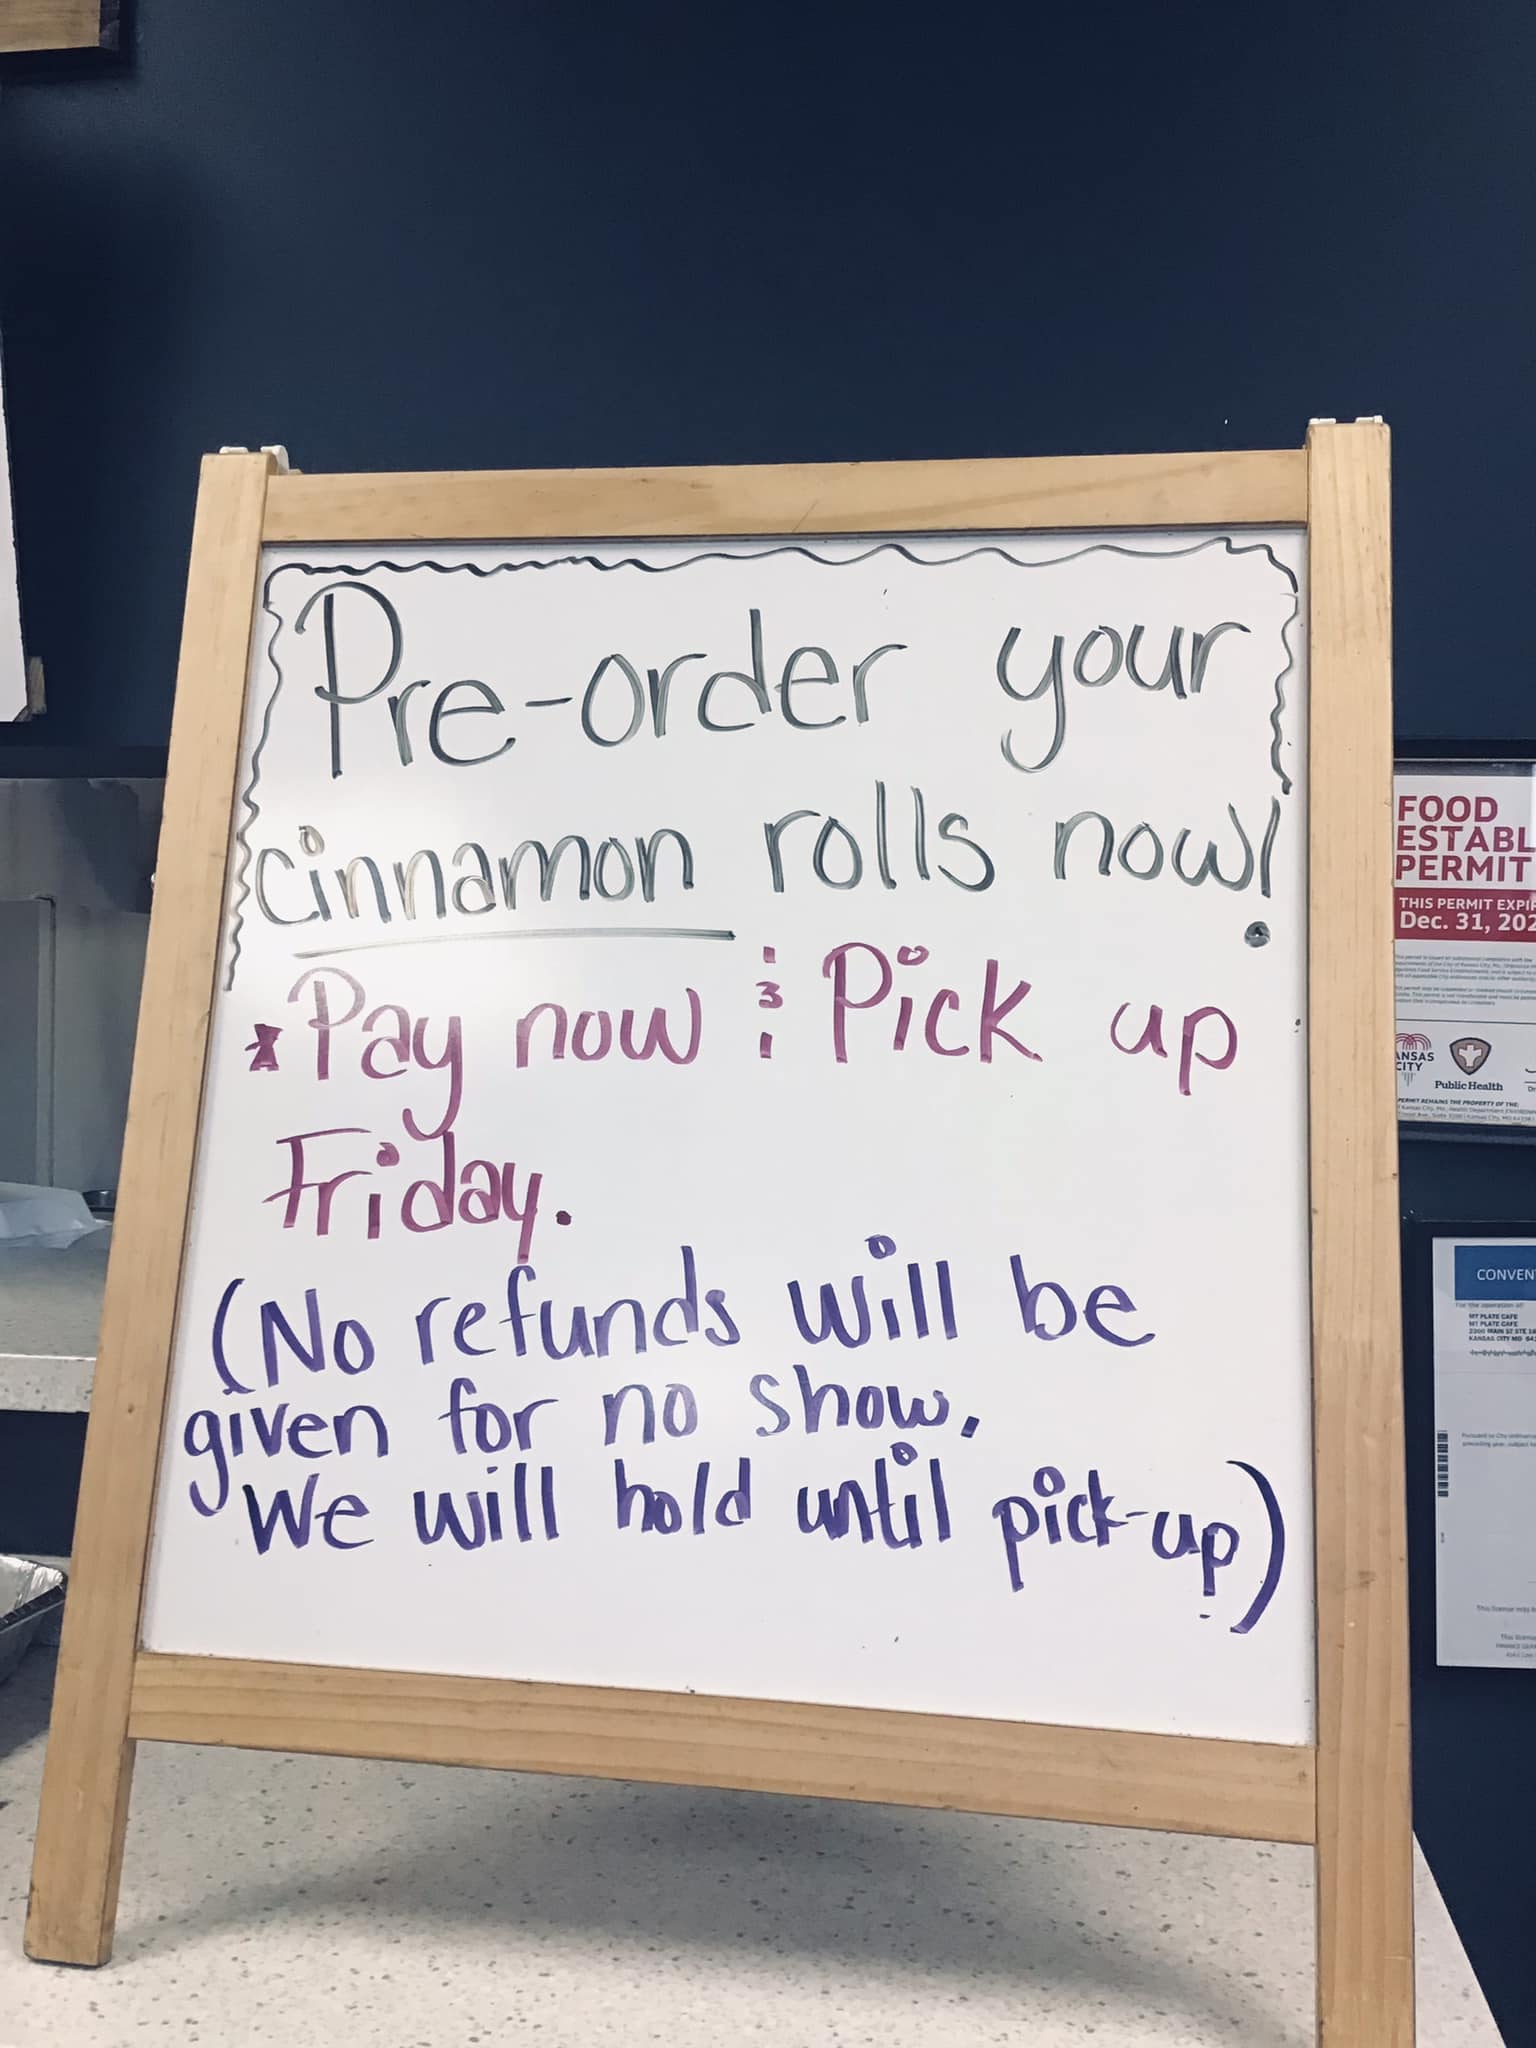 Pre-order your
cinnamon rolls now!
*Pay now & Pick up
Friday.
(No refunds will be
given for no show.
We will hold until pick-up)
FOOD
ESTABL
PERMIT
THIS PERMIT EXPIR
Dec. 31, 202
KANSAS
CITY
Public Health
PERMIT REMAINS THE PROPERTY OF THE:
CONVEN
For the operation of:
MY PLATE CAFE
MY PLATE CAFE
2300 MAIN ST STE
KANSAS CITY MO